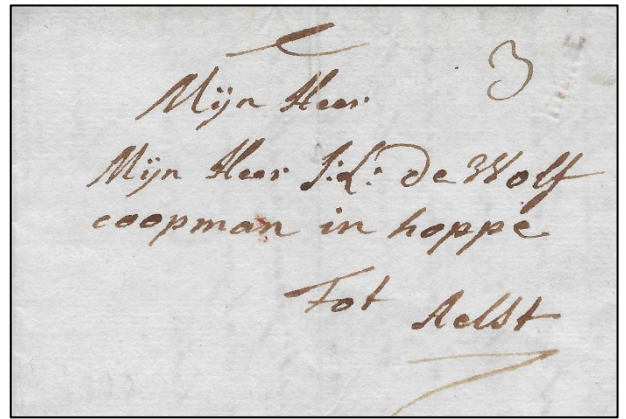 3
Mijn Heer
Mijn Heer J: L: de Wolf
coopman in hoppe
Tot Aelst